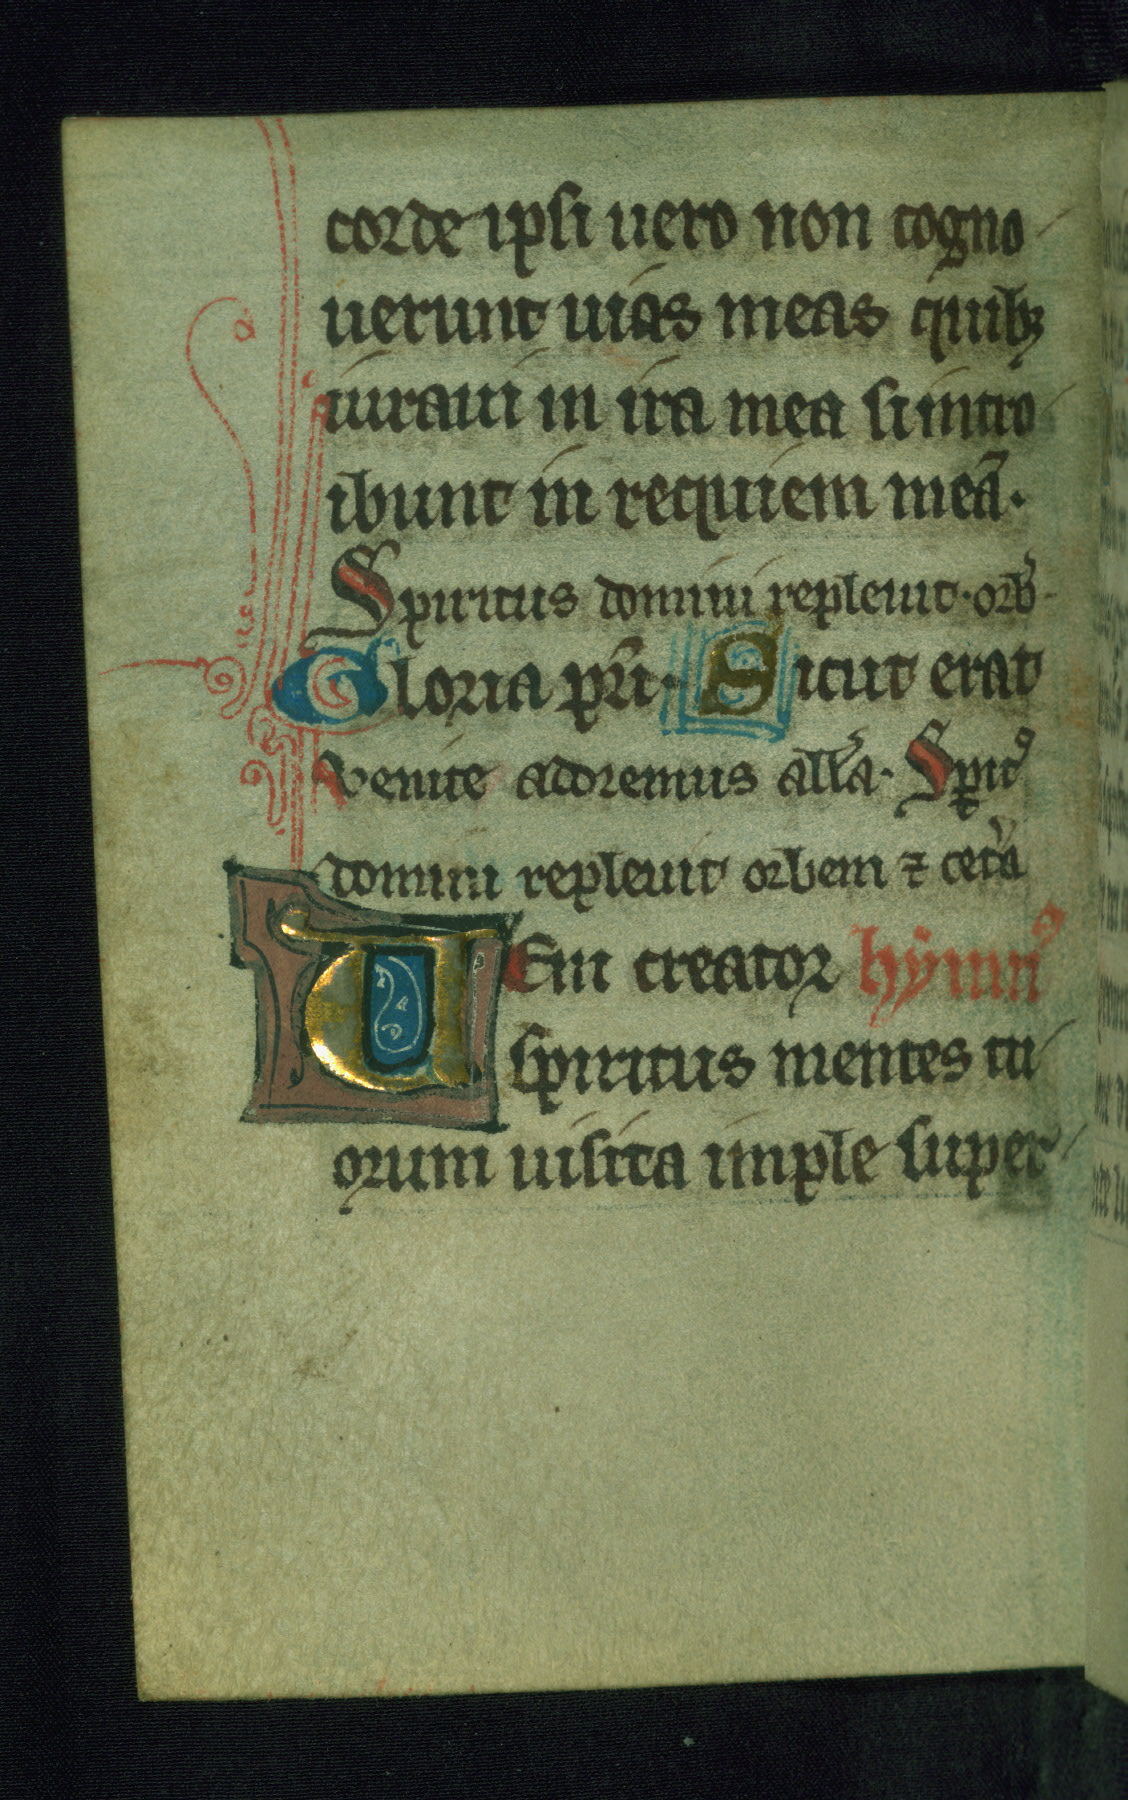 corde ipsi uero non cogno
uerunt uias meas quibꝫ
iuraui in ira mea si intro
ibunt in requiem meā.
Spiritus domini repleuit. orb̄
Gloria pr̄i. Sicut erat
venite adoremus all̄a. Sp̄ritꝰ
domini repleuit orbem ⁊ cet̾a
UEni creator hȳmnꝰ
spiritus mentes tu
orum uisita imple super